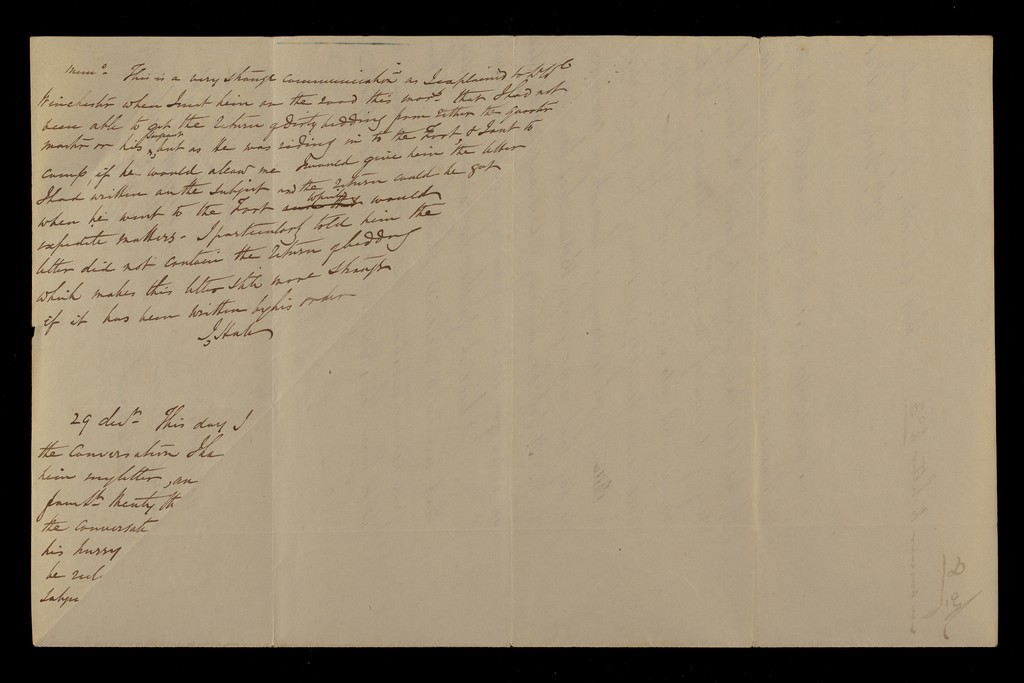 Memo. This is a very strange communication as I explained to
Winchester when I met him on the road this morg. that I had not
been able to get the return of dirty bedding from either the Quarter
master or his Sergeant, but as he was riding in to the Fort, & I sent to
camp if he would allow me I would give him the letter
I had written on the subject and the return could be got
when he went to the Fort which would
expedite matters. I particularly told him the
letter did not contain the return of bedding
which makes this letter still more strange
if it has been written by his order
29 decr. This day I
the conversation I ha
him my letter, an
from Lt. Menty th
the conversati
his hurry
be rec
subjec